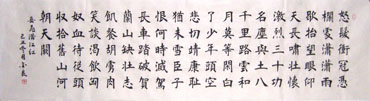 怒髮衝冠憑
欄處瀟瀟雨
歇抬望眼仰
天長嘯壯懷
激烈三十功
名塵與土八
千里路雲和
月莫等閑白
了少年頭空
悲切靖康恥
猶未雪臣子
恨何時滅駕
長車踏破賀
蘭山缺壯志
飢餐胡虜肉
笑談渴飲匈
奴血待從頭
收拾舊山河
朝天闕
岳飛滿江紅